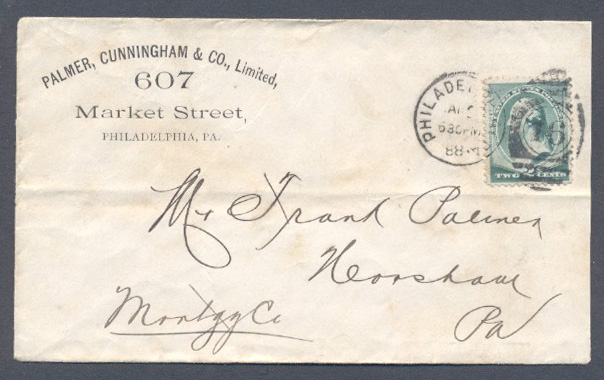 PALMER, CUNNINGHAM & CO., Limited,
607
Market Street,
PHILADELPHIA, PA.
PHILADE
630PM
88
TWO 2 CENTS
Mr Frank Palmer
Horsham
Montgy Co
Pa